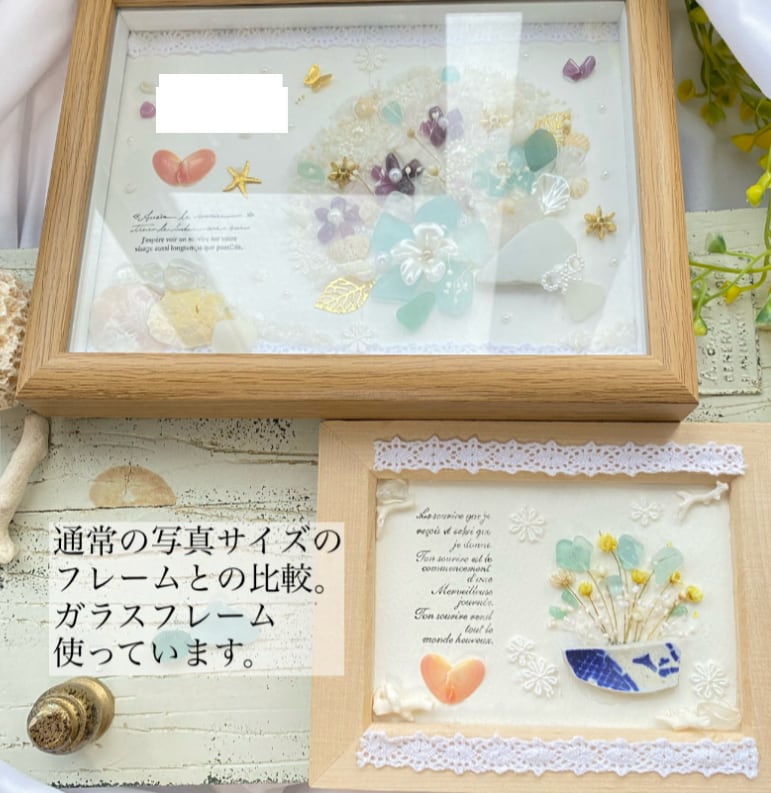 J'espère voir un sourire sur votre
visage aussi longtemps que possible.
A. C.
GENERAL
Le sourire que je
reçois et celui que
je donne.
Ton sourire est le
commencement
d'une
Merveilleuse
journée.
Ton sourire rend
tout le
monde heureux.
通常の写真サイズの
フレームとの比較。
ガラスフレーム
使っています。